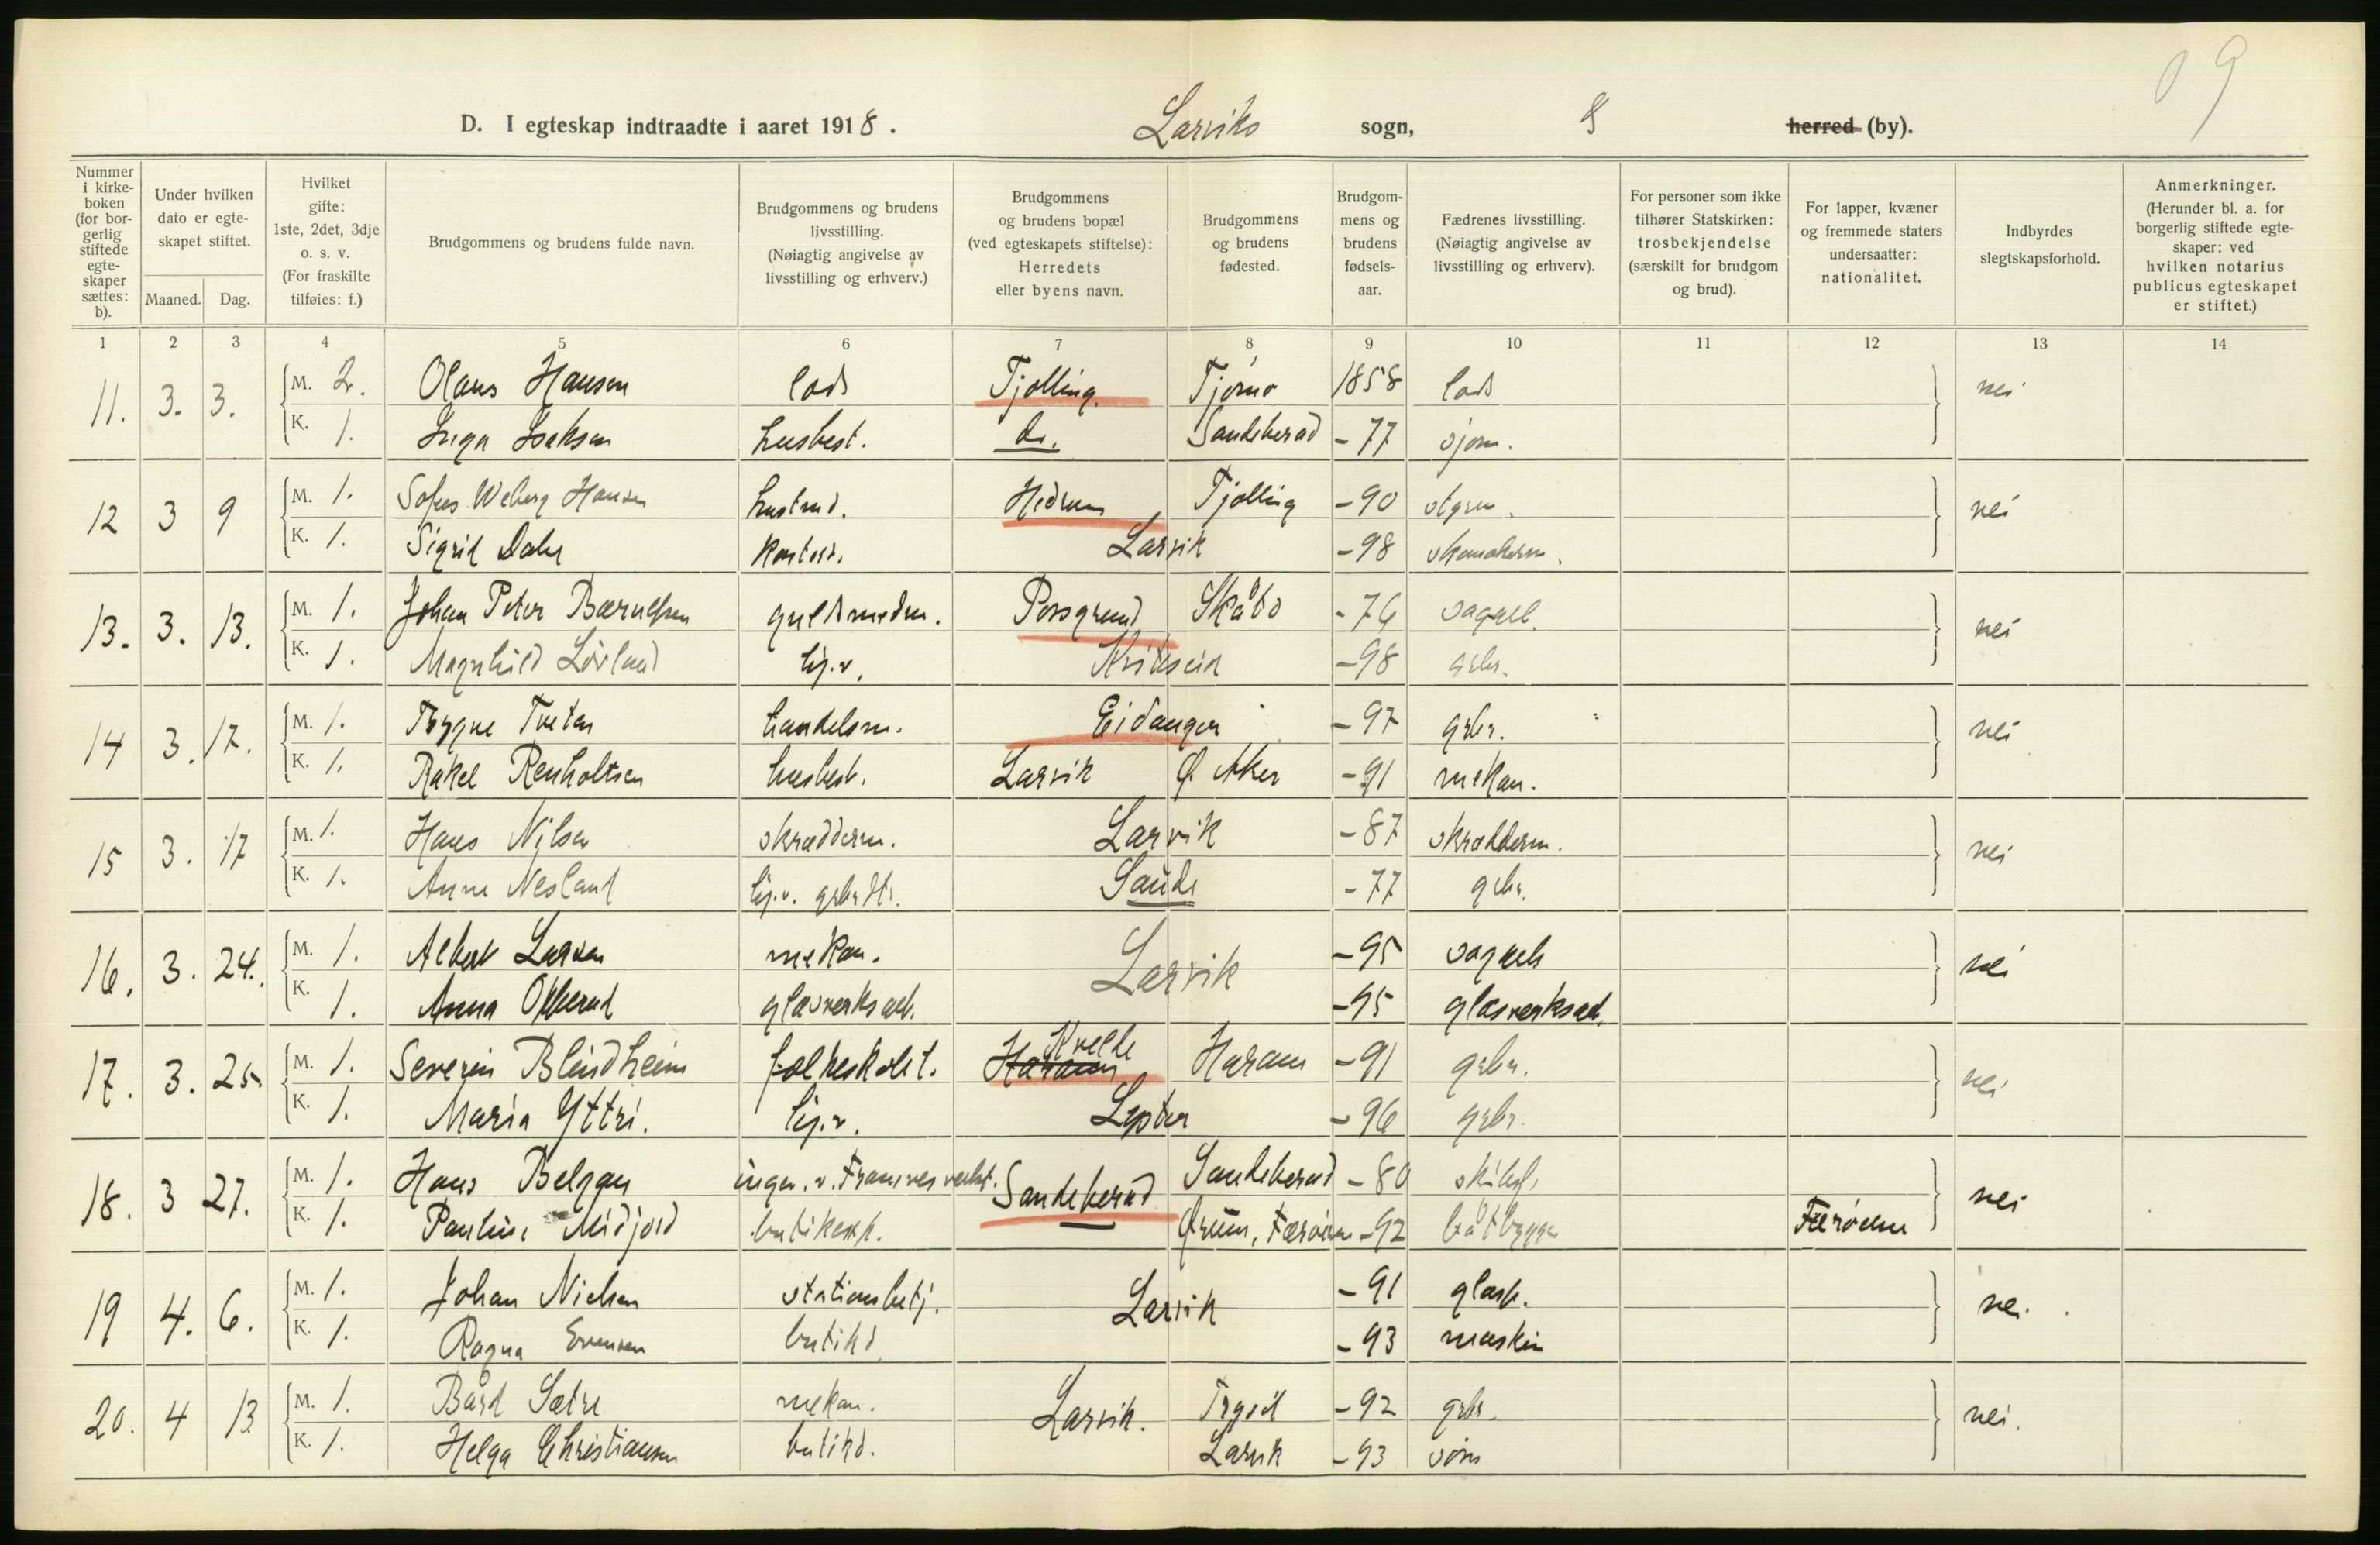 D. I egteskap indtraadte i aaret 1918. Larviks sogn, herred (by).
Nummer i kirkeboken (for borgerlig stiftede egteskaper sættes: b).
Under hvilken dato er egteskapet stiftet.
Maaned. Dag.
Hvilket gifte: 1ste, 2det, 3dje o. s. v. (For fraskilte tilføies: f.)
Brudgommens og brudens fulde navn.
Brudgommens og brudens livsstilling. (Nøiagtig angivelse av livsstilling og erhverv.)
Brudgommens og brudens bopæl (ved egteskapets stiftelse): Herredets eller byens navn.
Brudgommens og brudens fødested.
Brudgommens og brudens fødselsaar.
Fædrenes livsstilling. (Nøiagtig angivelse av livsstilling og erhverv).
For personer som ikke tilhører Statskirken: trosbekjendelse (særskilt for brudgom og brud).
For lapper, kvæner og fremmede staters undersaatter: nationalitet.
Indbyrdes slegtskapsforhold.
Anmerkninger. (Herunder bl. a. for borgerlig stiftede egteskaper: ved hvilken notarius publicus egteskapet er stiftet.)
1 2 3 4 5 6 7 8 9 10 11 12 13 14
11. 3. 3. M. 2. Olaus Hansen lods Tjølling Tjømø 1858 lods nei
K. 1. Inga Isaksen husbest. do. Sandeherad -77 sjøm.
12 3 9 M. 1. Sofus Weberg Hansen Hedrum Tjølling -90 nei
K. 1. Sigrid Dahl kontord. Larvik -98 skomakerm.
13. 3. 13. M. 1. Johan Peter guldsmedm. Porsgrund Skåtø -76 sagarb. nei
K. 1. Magnhild Løvland hj.v. Kviteseid -98 grbr.
14 3. 17. M. 1. Trygve Tveten handelsm. Eidanger -97 grbr. nei
K. 1. Rakel Renholtsen husbest. Larvik Ø. Aker -91 mekan.
15 3. 17 M. 1. Hans Nilsen skrædderm. Larvik -87 skrædderm. nei
K. 1. Anne Nesland hj.v. grbrdt. Saude -77 gbr.
16. 3. 24. M. 1. Albert Larsen mekan. Larvik -95 sagarb nei
K. 1. Anna glasverksarb. -95 glasverksarb.
17. 3. 25. M. 1. Severin Blindheim folkeskolel. Haram Kvelle Haram -91 grbr. nei
K. 1. Maria Yttri. hj.v. Lyster -96 grbr.
18. 3 27. M. 1. Hans Belgau ingen. v. Framnes verkst. Sandeherad Sandeherad -80 skibsf. nei
K. 1. Pauline Midjord butikeksp. Færøerne -92 båtbygger Færøerne
19 4. 6. M. 1. Johan Nielsen stationsbetj. Larvik -91 glasb. nei.
K. 1. Ragna Evensen butikd. -93 maskin
20. 4 13 M. 1. Bård Sætre mekan. Larvik. Trysil -92 grbr. nei.
K. 1. Helga Christiansen butikd. Larvik -93 sjøm